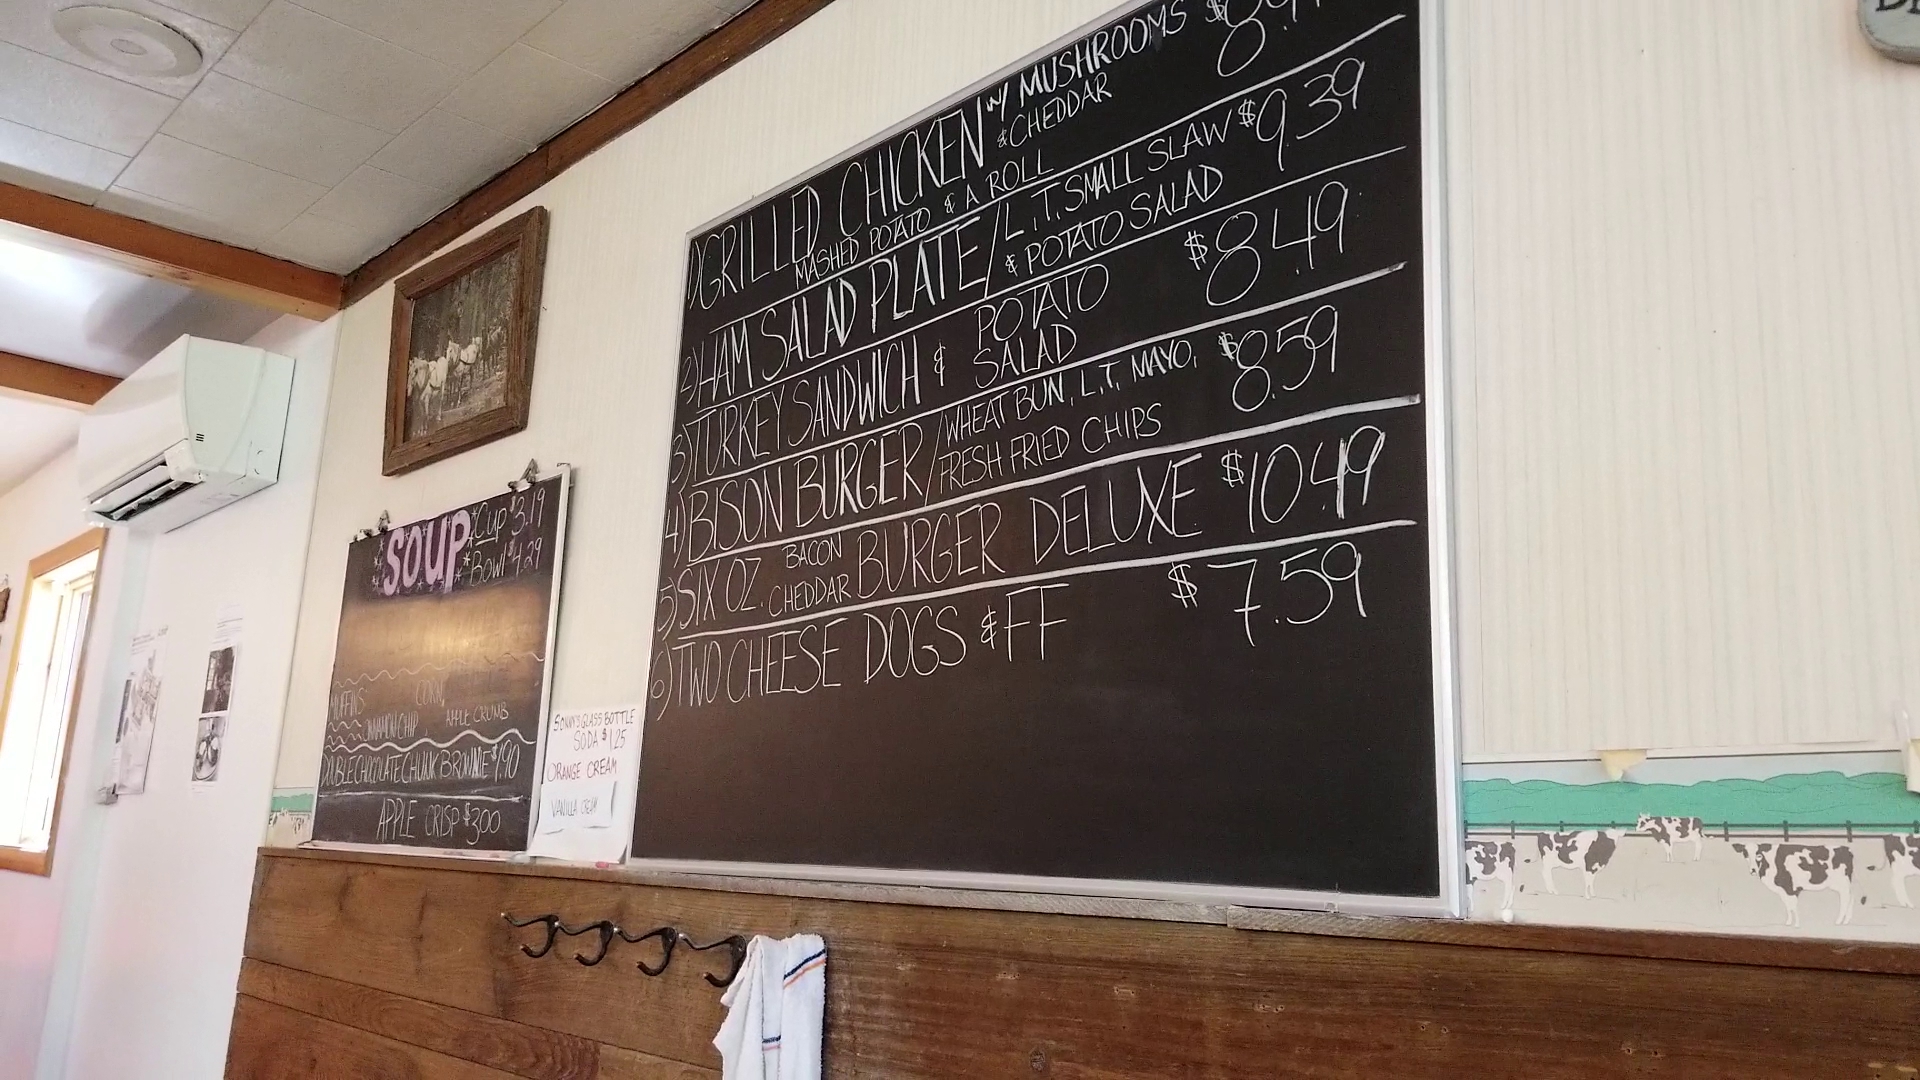 1) GRILLED CHICKEN W/ MUSHROOMS
& CHEDDAR
MASHED POTATO & A ROLL
2) HAM SALAD PLATE / L, T, SMALL SLAW $9.39
& POTATO SALAD
3) TURKEY SANDWICH & POTATO SALAD $8.49
4) BISON BURGER / WHEAT BUN, L, T, MAYO, $8.59
FRESH FRIED CHIPS
5) SIX OZ. BACON CHEDDAR BURGER DELUXE $10.49
6) TWO CHEESE DOGS & FF $7.59
SOUP
Cup $3.19
Bowl $4.29
MUFFINS: CORN,
CINNAMON CHIP, APPLE CRUMB
DOUBLE CHOCOLATE CHUNK BROWNIE $1.90
APPLE CRISP $3.00
GLASS BOTTLE
SODA $1.25
ORANGE CREAM
VANILLA CREAM